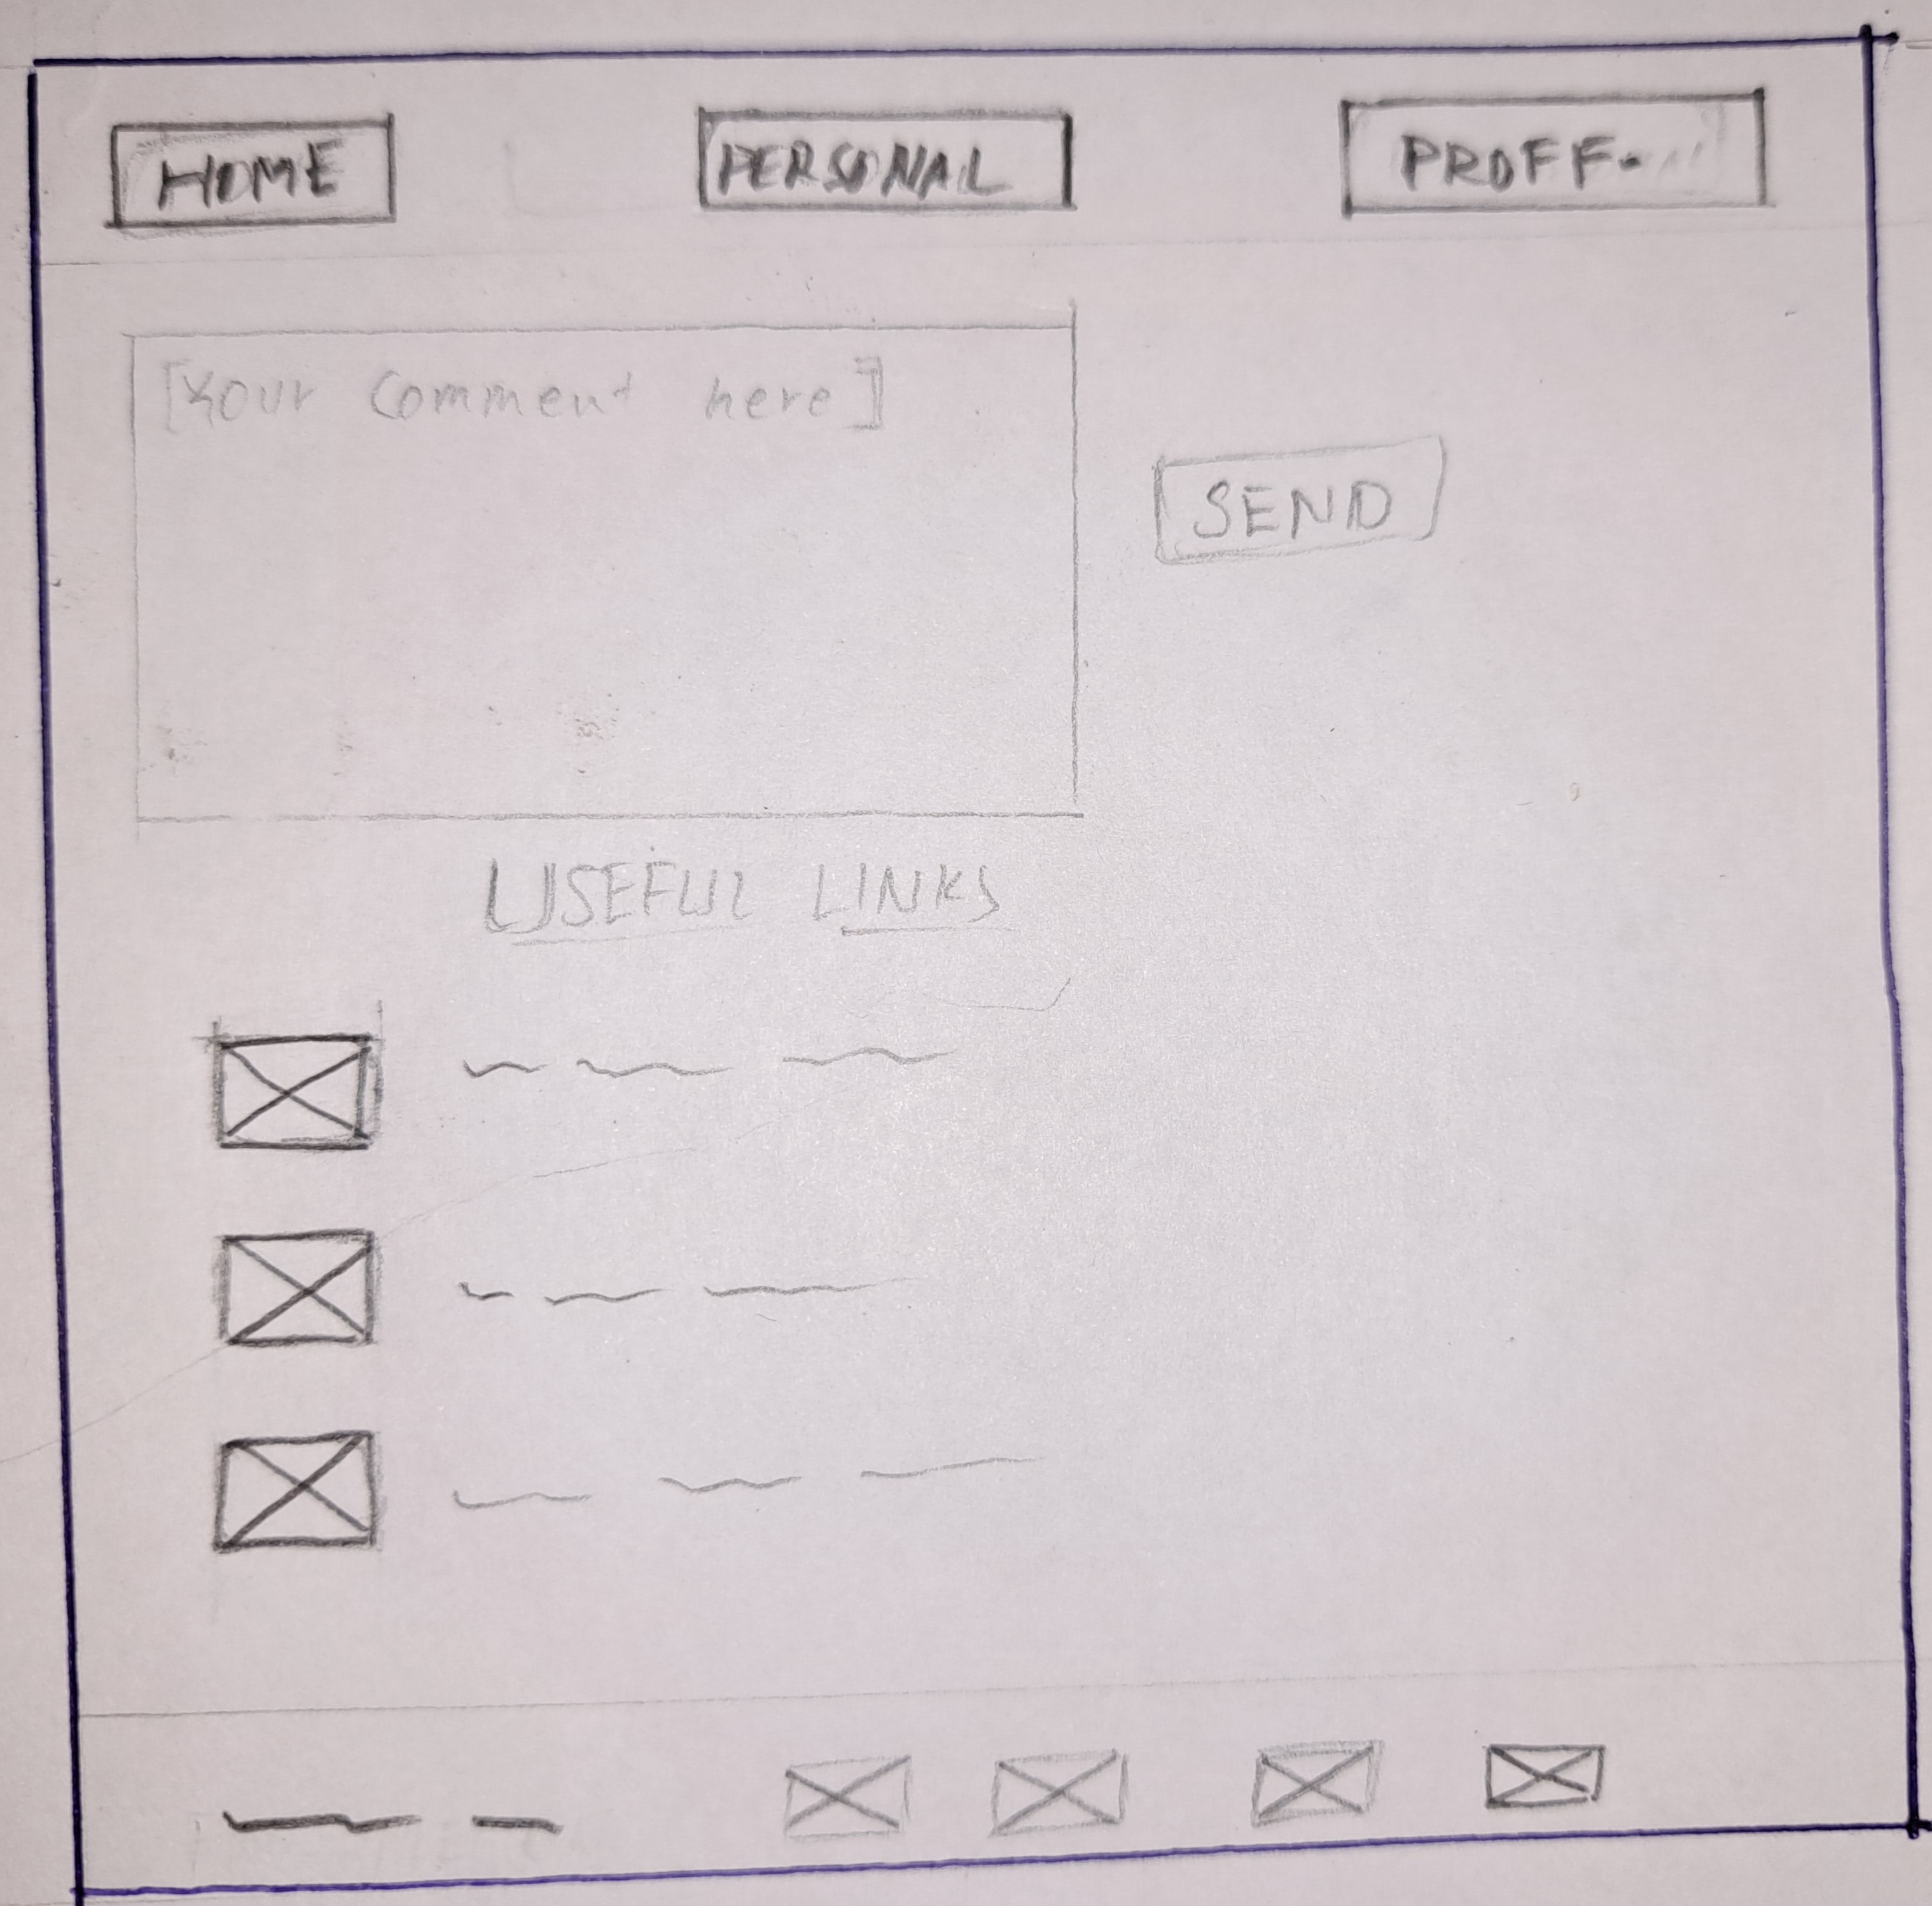 HOME PERSONAL PROFF.
[Your Comment here]
SEND
USEFUL LINKS